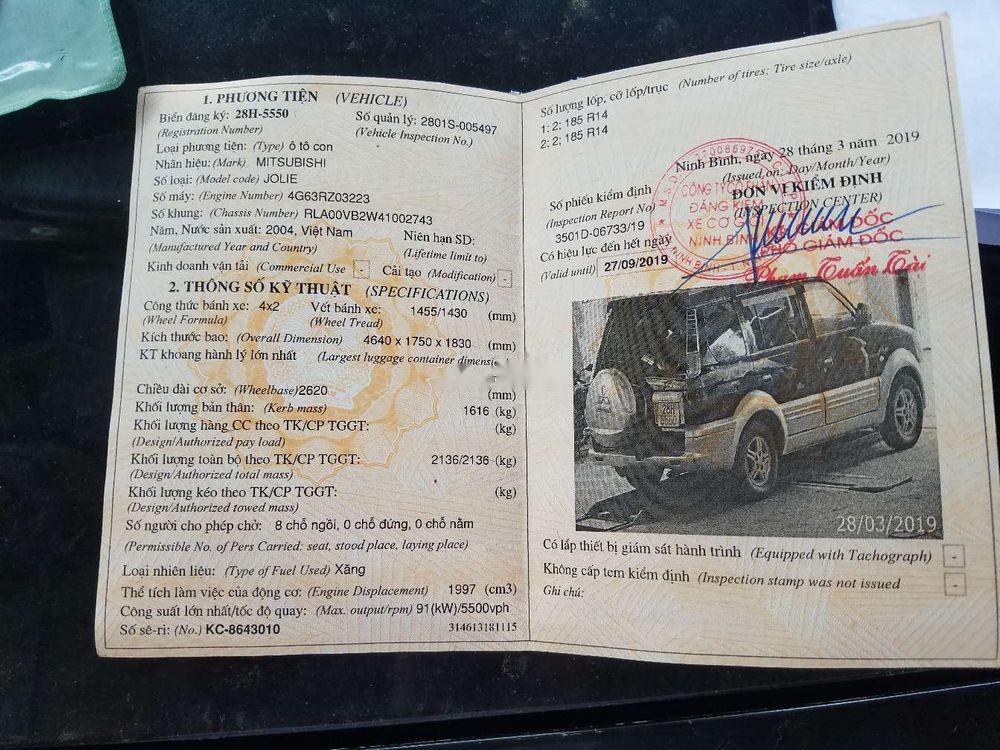 1. PHƯƠNG TIỆN (VEHICLE)
Biển đăng ký: 28H-5550 Số quản lý: 2801S-005497
(Registration Number) (Vehicle Inspection No.)
Loại phương tiện: (Type) ô tô con
Nhãn hiệu: (Mark) MITSUBISHI
Số loại: (Model code) JOLIE
Số máy: (Engine Number) 4G63RZ03223
Số khung: (Chassis Number) RLA00VB2W41002743
Năm, Nước sản xuất: 2004, Việt Nam Niên hạn SD:
(Manufactured Year and Country) (Lifetime limit to)
Kinh doanh vận tải (Commercial Use - Cải tạo (Modification) -
2. THÔNG SỐ KỸ THUẬT (SPECIFICATIONS)
Công thức bánh xe: 4x2 Vết bánh xe: 1455/1430 (mm)
(Wheel Formula) (Wheel Tread)
Kích thước bao: (Overall Dimension) 4640 x 1750 x 1830 (mm)
KT khoang hành lý lớn nhất (Largest luggage container
Chiều dài cơ sở: (Wheelbase)2620 (mm)
Khối lượng bản thân: (Kerb mass) 1616 (kg)
Khối lượng hàng CC theo TK/CP TGGT: (kg)
(Design/Authorized pay load)
Khối lượng toàn bộ theo TK/CP TGGT: 2136/2136 (kg)
(Design/Authorized total mass)
Khối lượng kéo theo TK/CP TGGT: (kg)
(Design/Authorized towed mass)
Số người cho phép chở: 8 chỗ ngồi, 0 chỗ đứng, 0 chỗ nằm
(Permissible No. of Pers Carried: seat, stood place, laying place)
Loại nhiên liệu: (Type of Fuel Used) Xăng
Thể tích làm việc của động cơ: (Engine Displacement) 1997 (cm3)
Công suất lớn nhất/tốc độ quay: (Max. output/rpm) 91(kW)/5500vph
Số sê-ri: (No.) KC-8643010 314613181115
Số lượng lốp, cỡ lốp/trục (Number of tires: Tire size/axle)
1; 2; 185 R14
2; 2; 185 R14
Ninh Bình, ngày 28 tháng 3 năm 2019
(Issued on: Day/Month/Year)
Số phiếu kiểm định ĐƠN VỊ KIỂM ĐỊNH
(Inspection Report No) (INSPECTION CENTER)
3501D-06733/19
Có hiệu lực đến hết ngày
(Valid until) 27/09/2019
CÔNG TY CỔ PHẦN
ĐĂNG KIỂM
XE CƠ GIỚI
NINH BÌNH
PHÓ GIÁM ĐỐC
Phạm Tuấn Tài
28H
28/03/2019
Có lắp thiết bị giám sát hành trình (Equipped with Tachograph) -
Không cấp tem kiểm định (Inspection stamp was not issued -
Ghi chú: